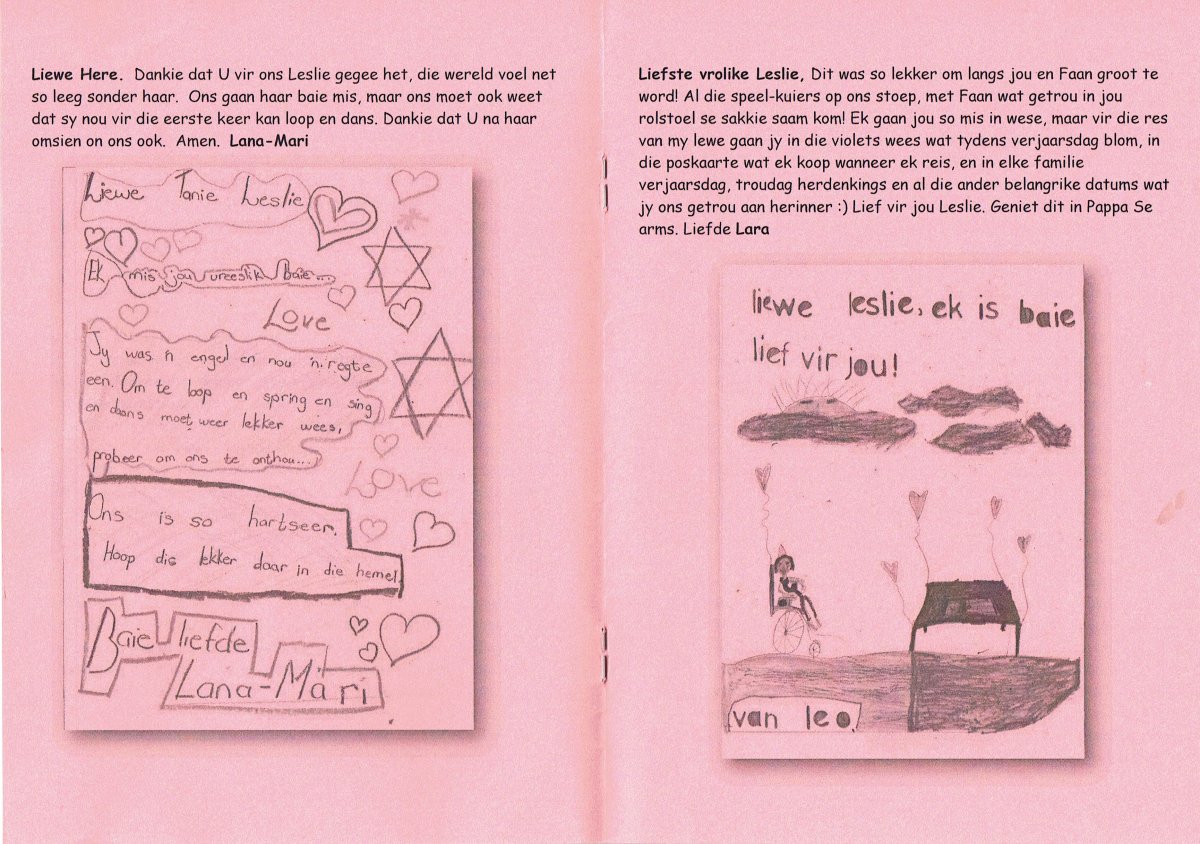 Liewe Here.  Dankie dat U vir ons Leslie gegee het, die wereld voel net
so leeg sonder haar.  Ons gaan haar baie mis, maar ons moet ook weet
dat sy nou vir die eerste keer kan loop en dans. Dankie dat U na haar
omsien en ons ook.  Amen.  Lana-Mari
Liewe Tanie Leslie
Ek mis jou vreeslik baie...
Love
Jy was 'n engel en nou 'n regte
een. Om te loop en spring en sing
en dans moet weer lekker wees,
probeer om ons te onthou...
Love
Ons is so hartseer.
Hoop dis lekker daar in die hemel
Baie liefde
Lana-Mari
Liefste vrolike Leslie, Dit was so lekker om langs jou en Faan groot te
word! Al die speel-kuiers op ons stoep, met Faan wat getrou in jou
rolstoel se sakkie saam kom! Ek gaan jou so mis in wese, maar vir die res
van my lewe gaan jy in die violets wees wat tydens verjaarsdag blom, in
die poskaarte wat ek koop wanneer ek reis, en in elke familie
verjaarsdag, troudag herdenkings en al die ander belangrike datums wat
jy ons getrou aan herinner :) Lief vir jou Leslie. Geniet dit in Pappa Se
arms. Liefde Lara
liewe leslie, ek is baie
lief vir jou!
van leo